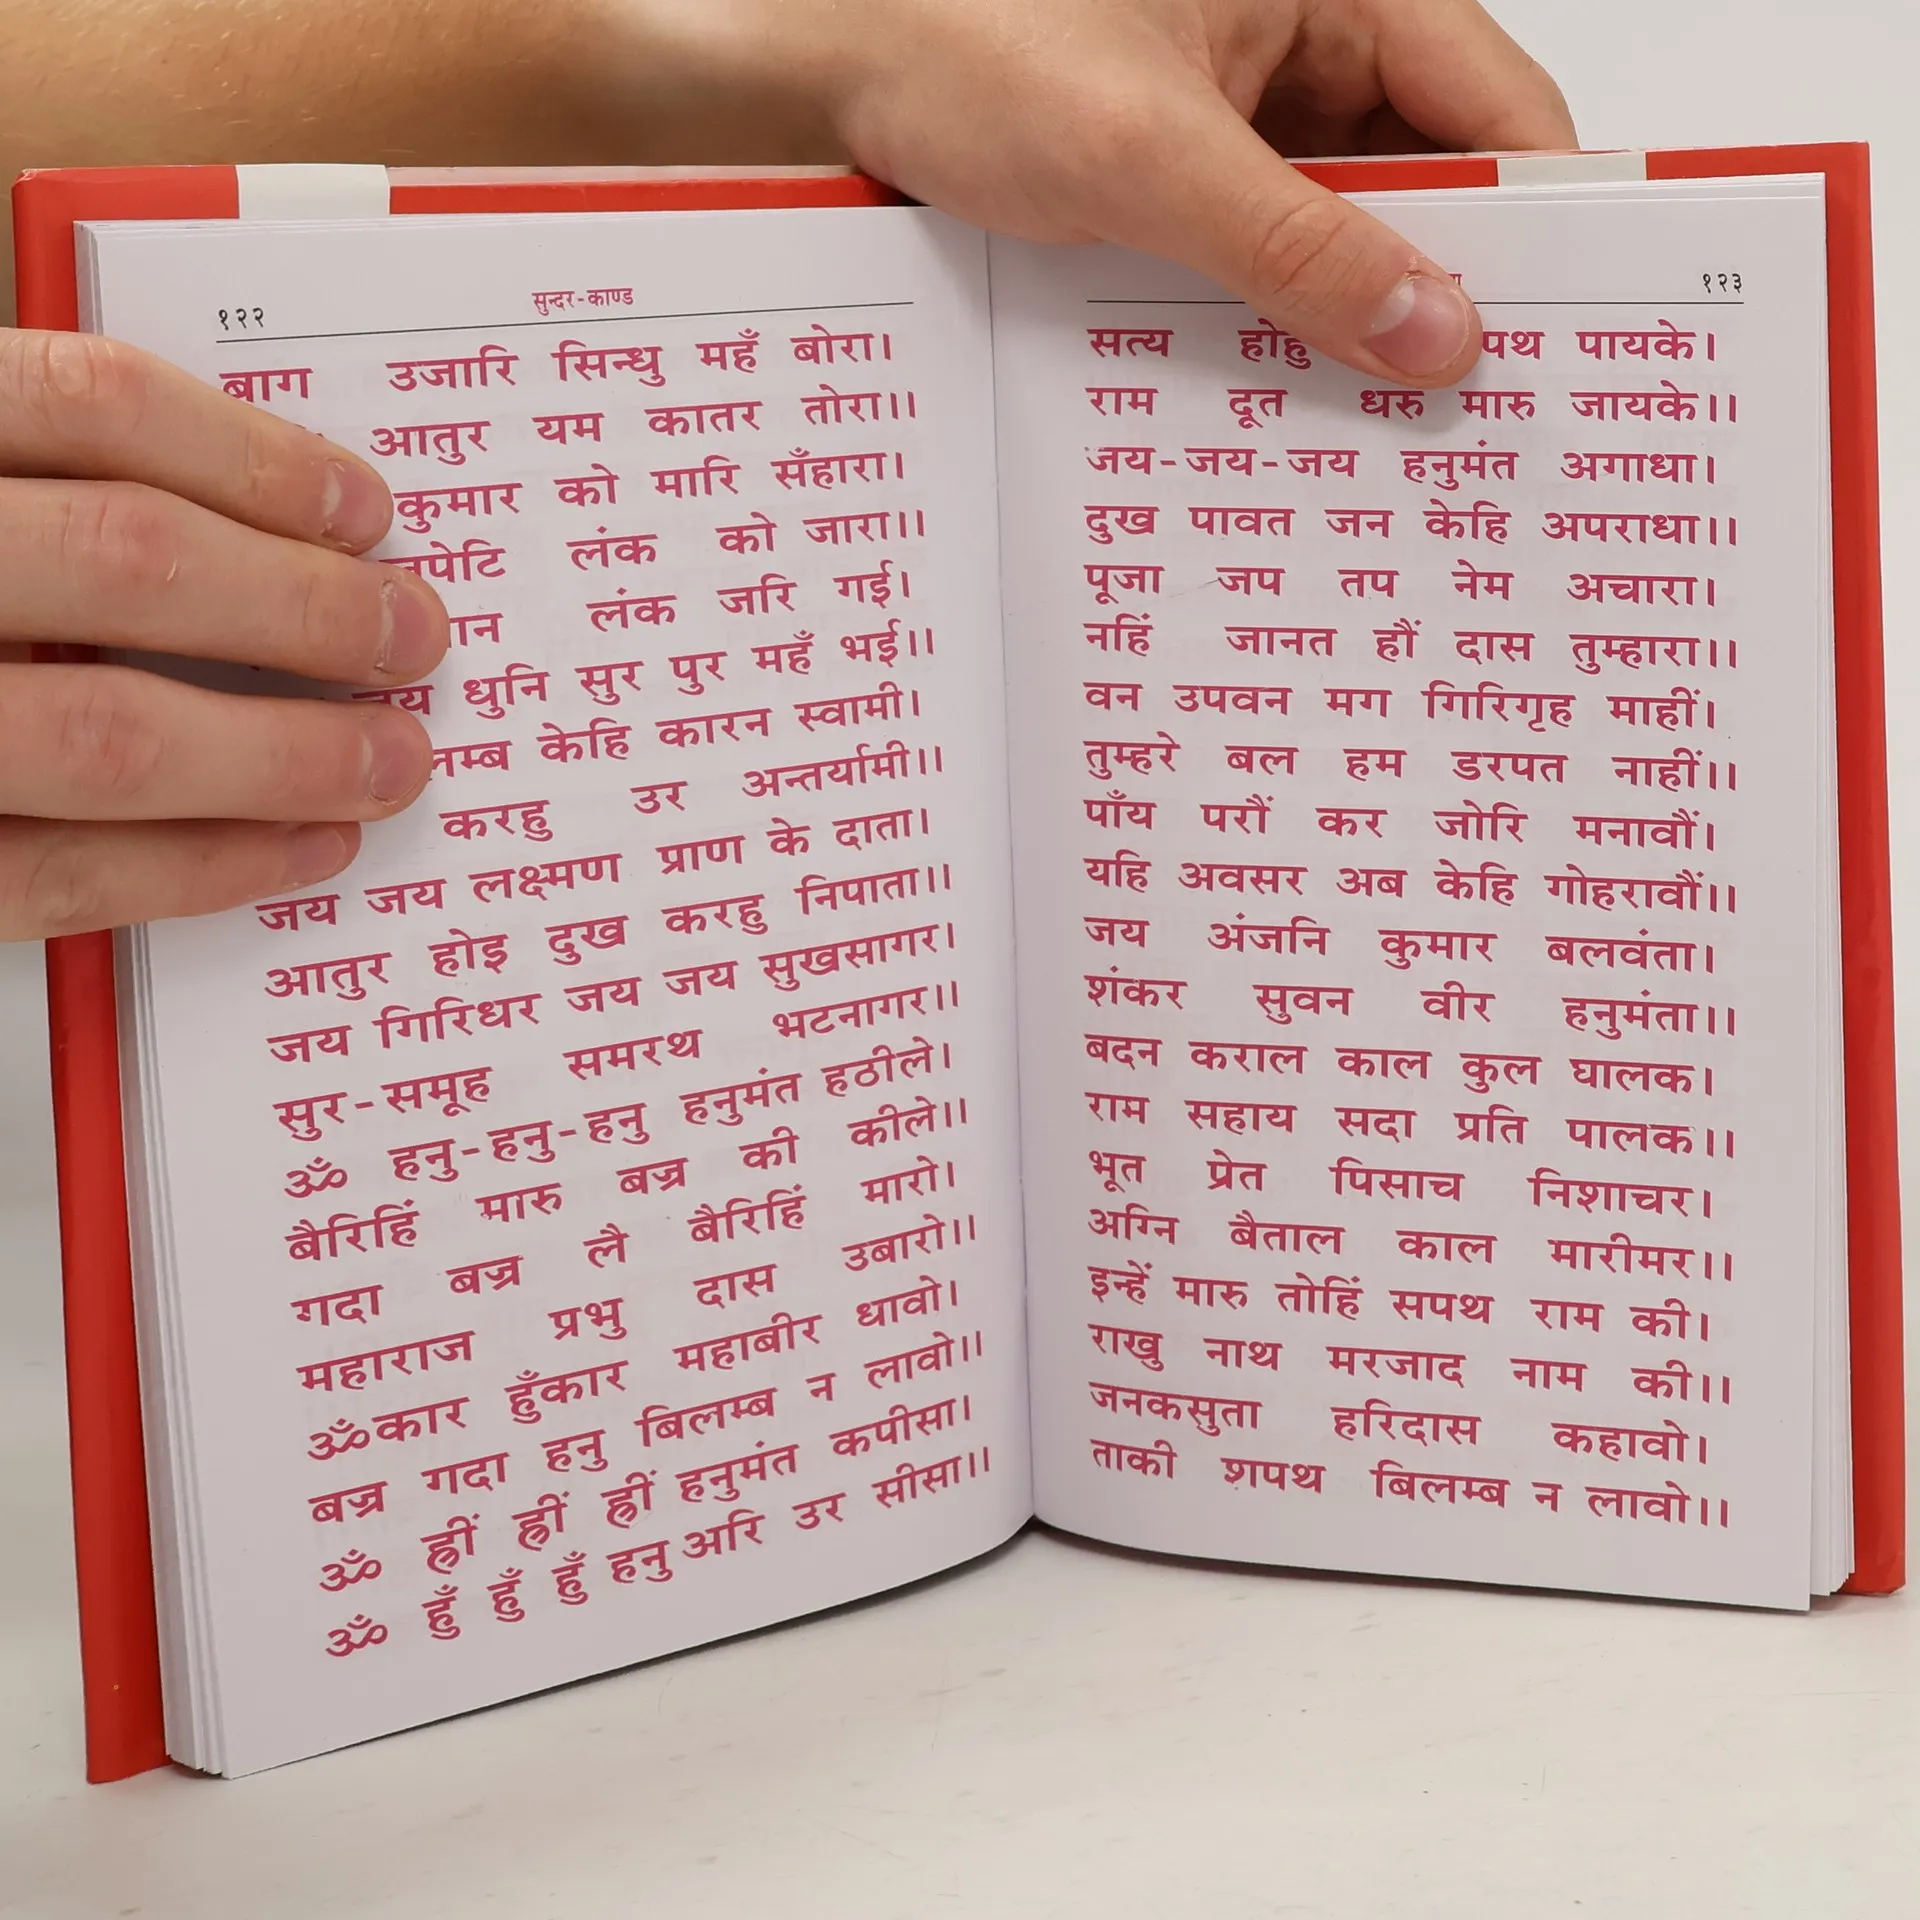 १२२
सुन्दर-काण्ड
बाग उजारि सिन्धु महँ बोरा।
आतुर यम कातर तोरा।।
कुमार को मारि सँहारा।
लंक को जारा।।
लंक जरि गई।
धुनि सुर पुर महँ भई।।
केहि कारन स्वामी।
करहु उर अन्तर्यामी।।
जय जय लक्ष्मण प्राण के दाता।
आतुर होइ दुख करहु निपाता।।
जय गिरिधर जय जय सुखसागर।
सुर-समूह समरथ भटनागर।।
ॐ हनु-हनु-हनु हनुमंत हठीले।
बैरिहिं मारु बज्र की कीले।।
गदा बज्र लै बैरिहिं मारो।
महाराज प्रभु दास उबारो।।
ॐकार हुँकार महाबीर धावो।
बज्र गदा हनु बिलम्ब न लावो।।
ॐ ह्रीं ह्रीं ह्रीं हनुमंत कपीसा।
ॐ हुँ हुँ हुँ हनु अरि उर सीसा।।
१२३
सत्य होहु पायके।
राम दूत धरु मारु जायके।।
जय-जय-जय हनुमंत अगाधा।
दुख पावत जन केहि अपराधा।।
पूजा जप तप नेम अचारा।
नहिं जानत हौं दास तुम्हारा।।
वन उपवन मग गिरिगृह माहीं।
तुम्हरे बल हम डरपत नाहीं।।
पाँय परौं कर जोरि मनावौं।
यहि अवसर अब केहि गोहरावौं।।
जय अंजनि कुमार बलवंता।
शंकर सुवन वीर हनुमंता।।
बदन कराल काल कुल घालक।
राम सहाय सदा प्रति पालक।।
भूत प्रेत पिसाच निशाचर।
अग्नि बैताल काल मारीमर।।
इन्हें मारु तोहिं सपथ राम की।
राखु नाथ मरजाद नाम की।।
जनकसुता हरिदास कहावो।
ताकी शपथ बिलम्ब न लावो।।